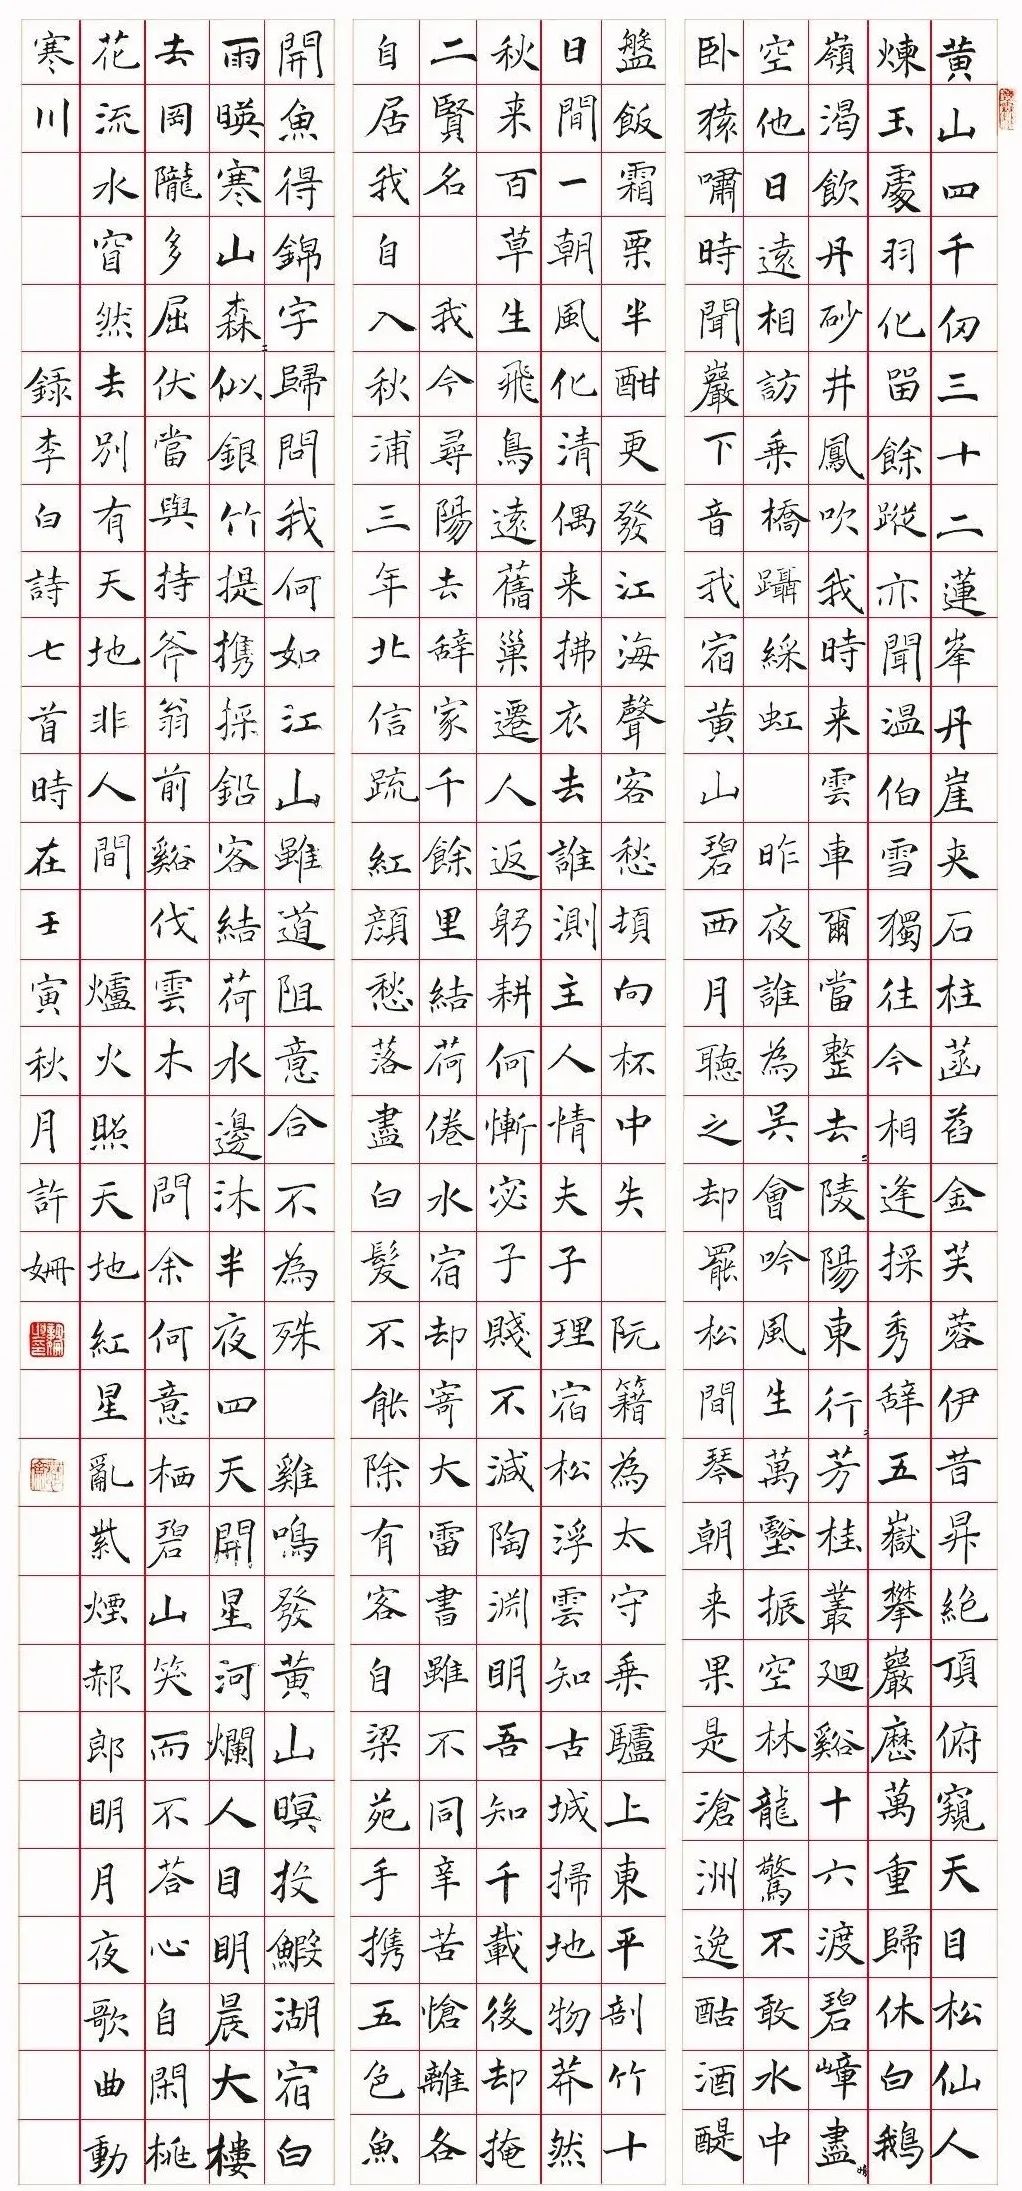 黄山四千仞三十二蓮峯丹崖夾石柱菡萏金芙蓉伊昔昇絶頂俯窺天目松仙人
煉玉處羽化留餘蹤亦聞温伯雪獨往今相逢採秀辞五嶽攀巖歷萬重歸休白鵝
嶺渴飲丹砂井鳳吹我時来雲車爾當整去々陵陽東行々芳桂叢廻谿十六渡碧嶂盡晴
空他日遠相訪乗橋躡綵虹 昨夜誰為吳會吟風生萬壑振空林龍驚不敢水中
卧猿嘯時聞巖下音我宿黄山碧西月聴之却罷松間琴朝来果是滄洲逸酤酒醍
盤飯霜栗半酣更發江海聲客愁頓向杯中失 阮籍為太守乗驢上東平剖竹十
日間一朝風化清偶来拂衣去誰測主人情夫子理宿松浮雲知古城掃地物莽然
秋来百草生飛鳥遠舊巢遷人返躬耕何慚宓子賤不減陶淵明吾知千載後却掩
二賢名 我今尋陽去辞家千餘里結荷倦水宿却寄大雷書雖不同辛苦愴離各
自居我自入秋浦三年北信疏紅顔愁落盡白髪不能除有客自梁苑手携五色魚
開魚得錦字歸問我何如江山雖道阻意合不為殊 雞鳴發黄山暝投鰕湖宿白
雨暎寒山森々似銀竹提携採鉛客結荷水邊沐半夜四天開星河爛人目明晨大樓
去岡隴多屈伏當與持斧翁前谿伐雲木 問余何意栖碧山笑而不荅心自閑桃
花流水窅然去別有天地非人間 爐火照天地紅星亂紫煙郝郎明月夜歌曲動
寒川 録李白詩七首時在壬寅秋月許姍